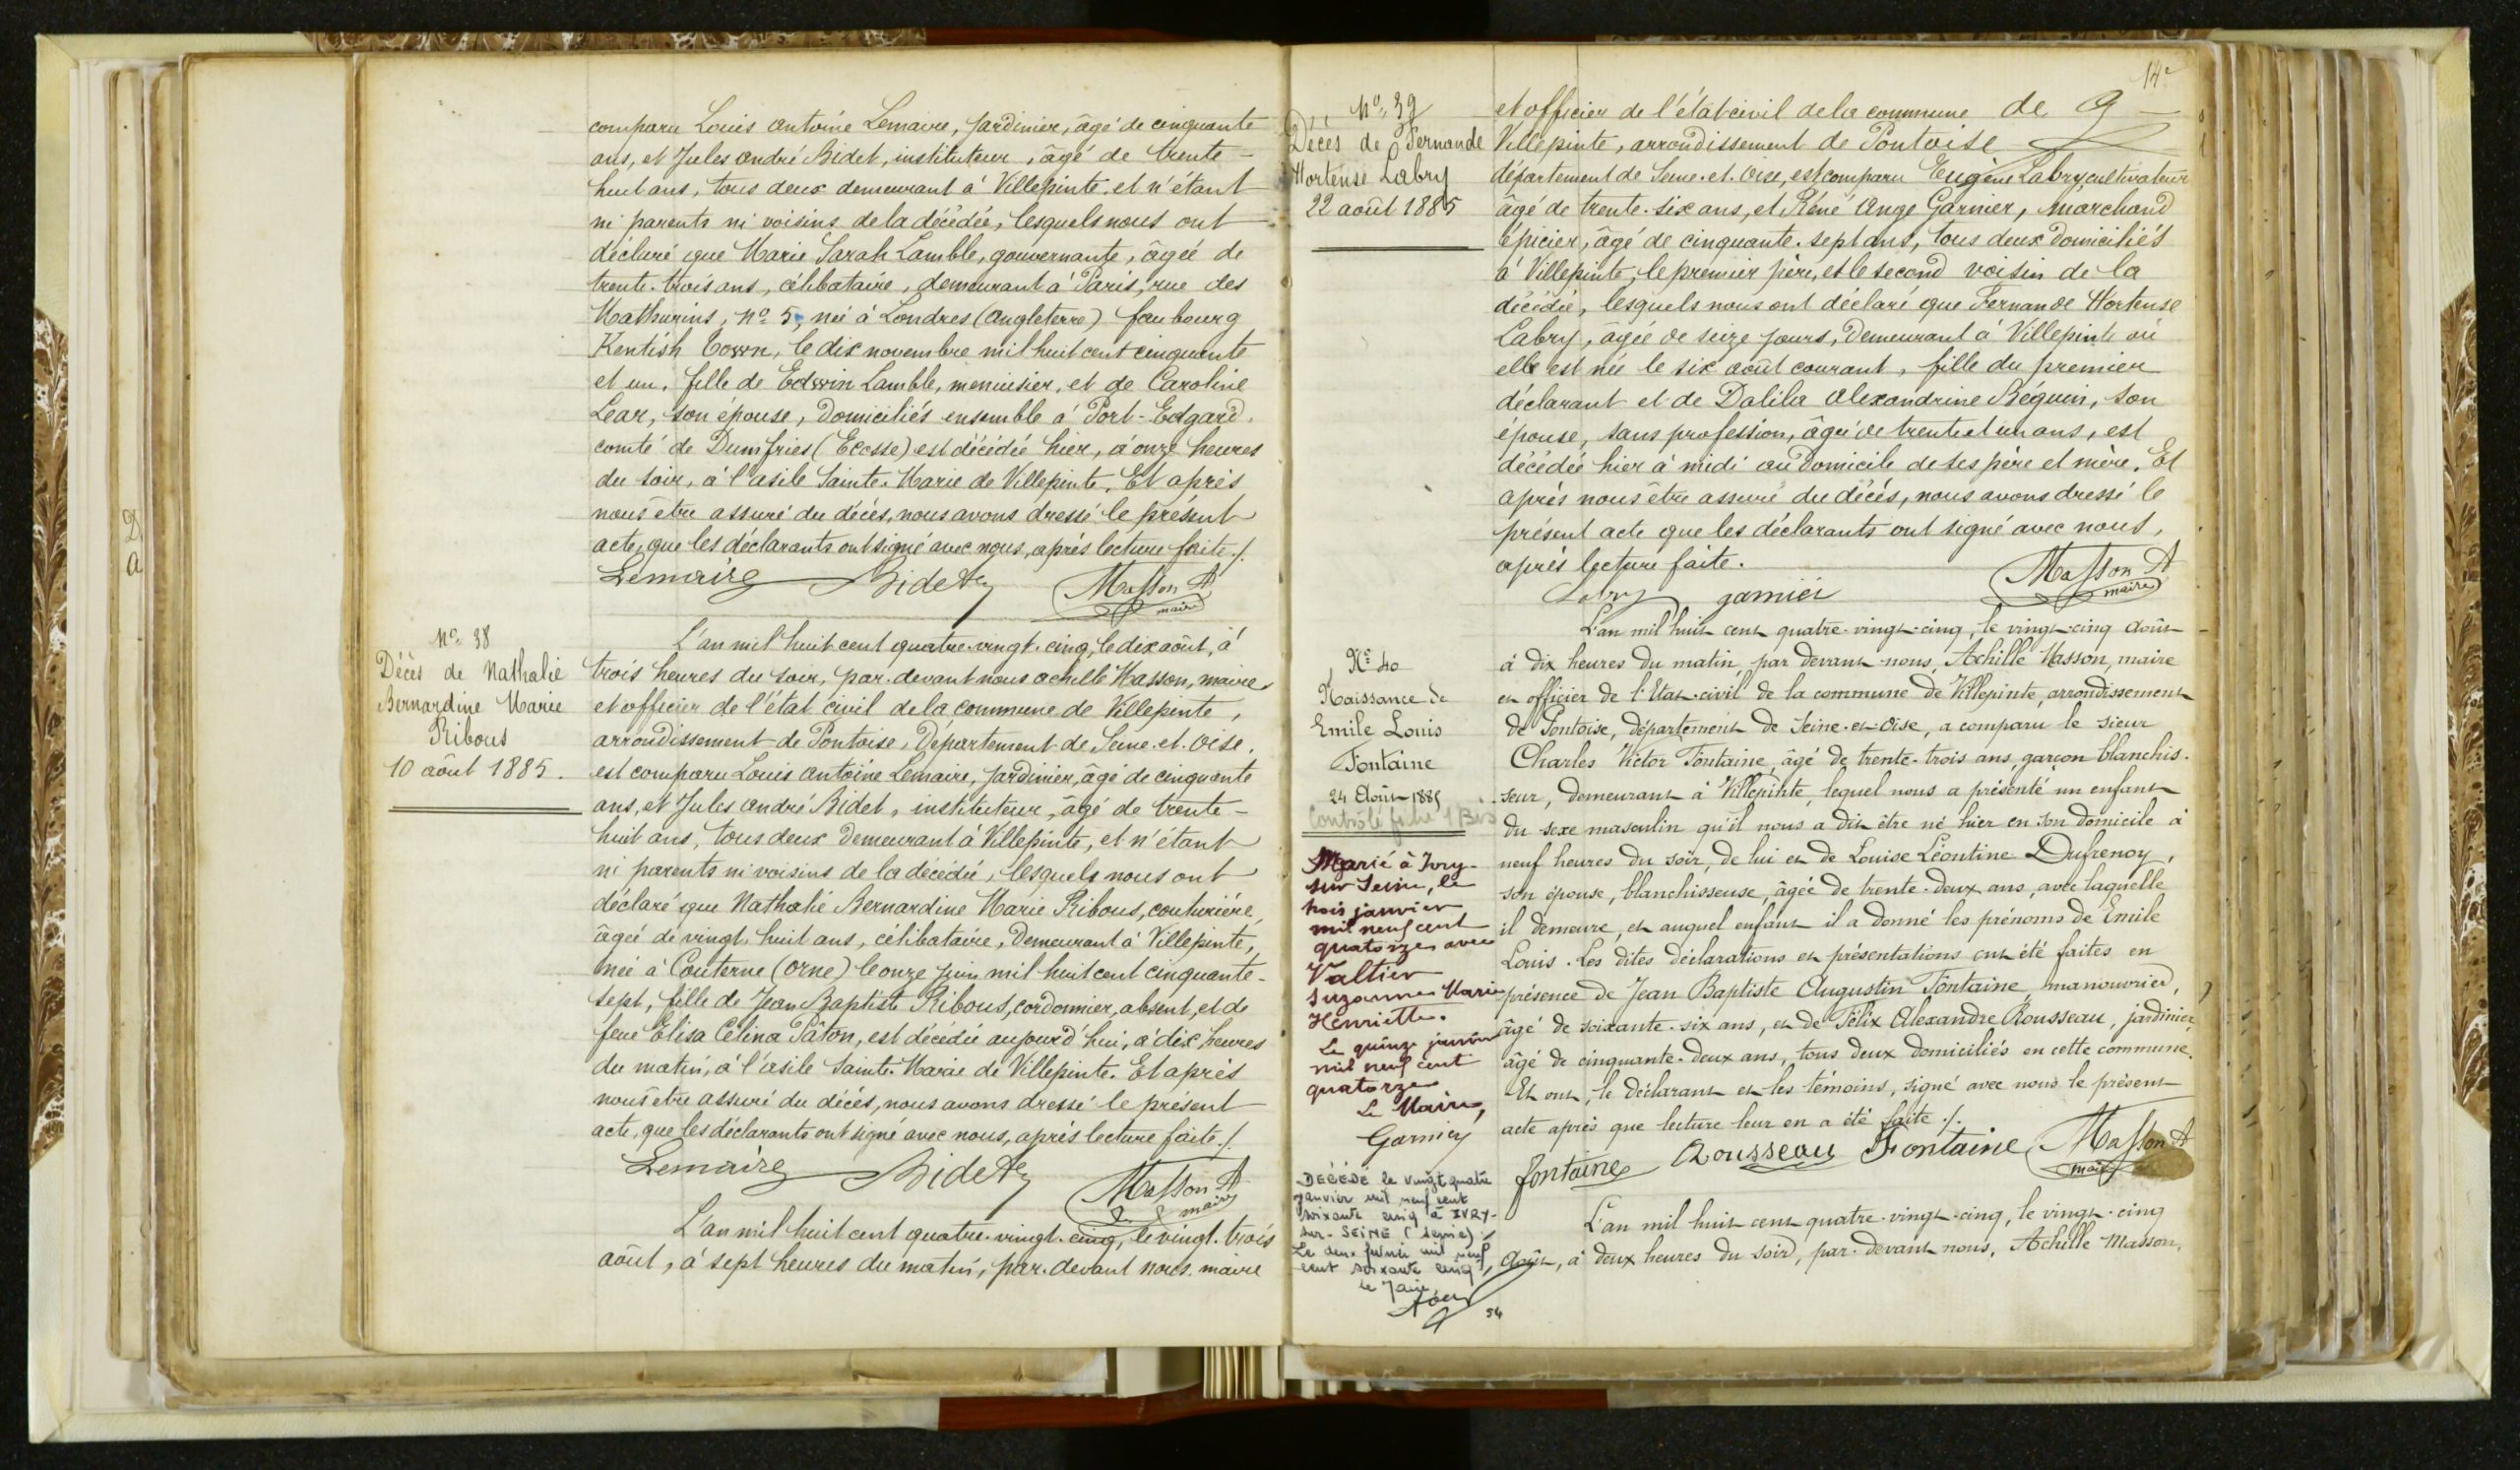 comparu Louis antoine Lemaire, Jardinier, âgé de cinquante
ans, et Jules andré Bidet, instituteur, âgé de trente-
huit ans, tous deux demeurant à Villepinte, et n'étant
ni parents ni voisins de la décédée, lesquels nous ont
déclaré que Marie Sarah Lamble, gouvernante, âgée de
trente-trois ans, célibataire, demeurant à Paris, rue des
Mathurins, No 5, née à Londres (angleterre) faubourg
Kentish Town, le dix novembre mil huit cent cinquante
et un, fille de Edwin Lamble, menuisier, et de Caroline
Lear, son épouse, domiciliés ensemble à Port-Edgard.
comté de Dumfries (Ecosse) est décédée hier, à onze heures
du soir, à l'asile Sainte-Marie de Villepinte. Et après
nous être assuré du décès, nous avons dressé le présent
acte, que les déclarants ont signé avec nous, après lecture faite./.
Lemaire Bidet Masson A
maire
No 38
Décès de Nathalie
Bernardine Marie
Ribous
10 août 1885.
L'an mil huit cent quatre-vingt-cinq, le dix août, à
trois heures du soir, par-devant nous achille Masson, maire
et officier de l'état civil de la commune de Villepinte,
arrondissement de Pontoise, Département de Seine-et-Oise,
est comparu Louis antoine Lemaire, Jardinier, âgé de cinquante
ans, et Jules andré Bidet, instituteur, âgé de trente-
huit ans, tous deux demeurant à Villepinte, et n'étant
ni parents ni voisins de la décédée, lesquels nous ont
déclaré que Nathalie Bernardine Marie Ribous, couturière,
âgée de vingt-huit ans, célibataire, demeurant à Villepinte,
née à Couterne (Orne) le onze juin mil huit cent cinquante-
sept, fille de Jean Baptiste Ribous, cordonnier, absent, et de
feue Elisa Célina Pâton, est décédée aujourd'hui, à dix heures
du matin, à l'asile Sainte-Marie de Villepinte. Et après
nous être assuré du décès, nous avons dressé le présent
acte, que les déclarants ont signé avec nous, après lecture faite./.
Lemaire Bidet Masson A
maire
L'an mil huit cent quatre-vingt-cinq, le vingt-trois
août, à sept heures du matin, par-devant nous. maire
14e
No 39
Décès de Fernande
Hortense Labry
22 août 1885
et officier de l'état civil de la commune de
Villepinte, arrondissement de Pontoise
département de Seine-et-Oise, est comparu Eugène Labry, cultivateur
âgé de trente-six ans, et Réné Ange Garnier, marchand
épicier, âgé de cinquante-sept ans, tous deux domiciliés
à Villepinte, le premier père, et le second voisin de la
décédée, lesquels nous ont déclaré que Fernande Hortense
Labry, âgée de seize jours, demeurant à Villepinte où
elle est née le six août courant, fille du premier
déclarant et de Dalila Alexandrine Béguin, son
épouse, sans profession, âgée de trente et un ans, est
décédée hier à midi au domicile de ses père et mère. Et
après nous être assuré du décès, nous avons dressé le
présent acte que les déclarants ont signé avec nous,
après lecture faite.
Labry garnier Masson A
maire
No 40
Naissance de
Emile Louis
Fontaine
24 Août 1885
Contrôlé fiche 1 Bis
L'an mil huit cent quatre-vingt-cinq, le vingt-cinq août
à dix heures du matin par devant nous, Achille Masson, maire
et officier de l'Etat-civil de la commune de Villepinte, arrondissement
de Pontoise, département de Seine-et-Oise, a comparu le sieur
Charles Victor Fontaine, âgé de trente-trois ans, garçon blanchis-
seur, demeurant à Villepinte, lequel nous a présenté un enfant
du sexe masculin qu'il nous a dit être né hier en son domicile à
neuf heures du soir, de lui et de Louise Léontine Dufrenoy,
son épouse, blanchisseuse, âgée de trente-deux ans, avec laquelle
il demeure, et auquel enfant il a donné les prénoms de Emile
Louis. Les dites déclarations et présentations ont été faites en
présence de Jean Baptiste Augustin Fontaine, manouvrier,
âgé de soixante-six ans, et de Félix Alexandre Rousseau, jardinier,
âgé de cinquante-deux ans, tous deux domiciliés en cette commune.
Et ont, le déclarant et les témoins, signé avec nous le présent
acte après que lecture leur en a été faite./.
fontaine Rousseau Fontaine Masson A
maire
Marié à Ivry-
sur Seine, le
trois janvier
mil neuf cent
quatorze avec
Valtier
Suzanne Marie
Henriette.
Le quinze janvier
mil neuf cent
quatorze
Le Maire,
Garnier
DÉCÉDÉ le vingt quatre
janvier mil neuf cent
soixante cinq à IVRY-
sur-SEINE (Seine)
Le deux février mil neuf
cent soixante cinq,
le Maire
54
L'an mil huit cent quatre-vingt-cinq, le vingt-cinq
Août, à deux heures du soir, par-devant nous, Achille Masson,